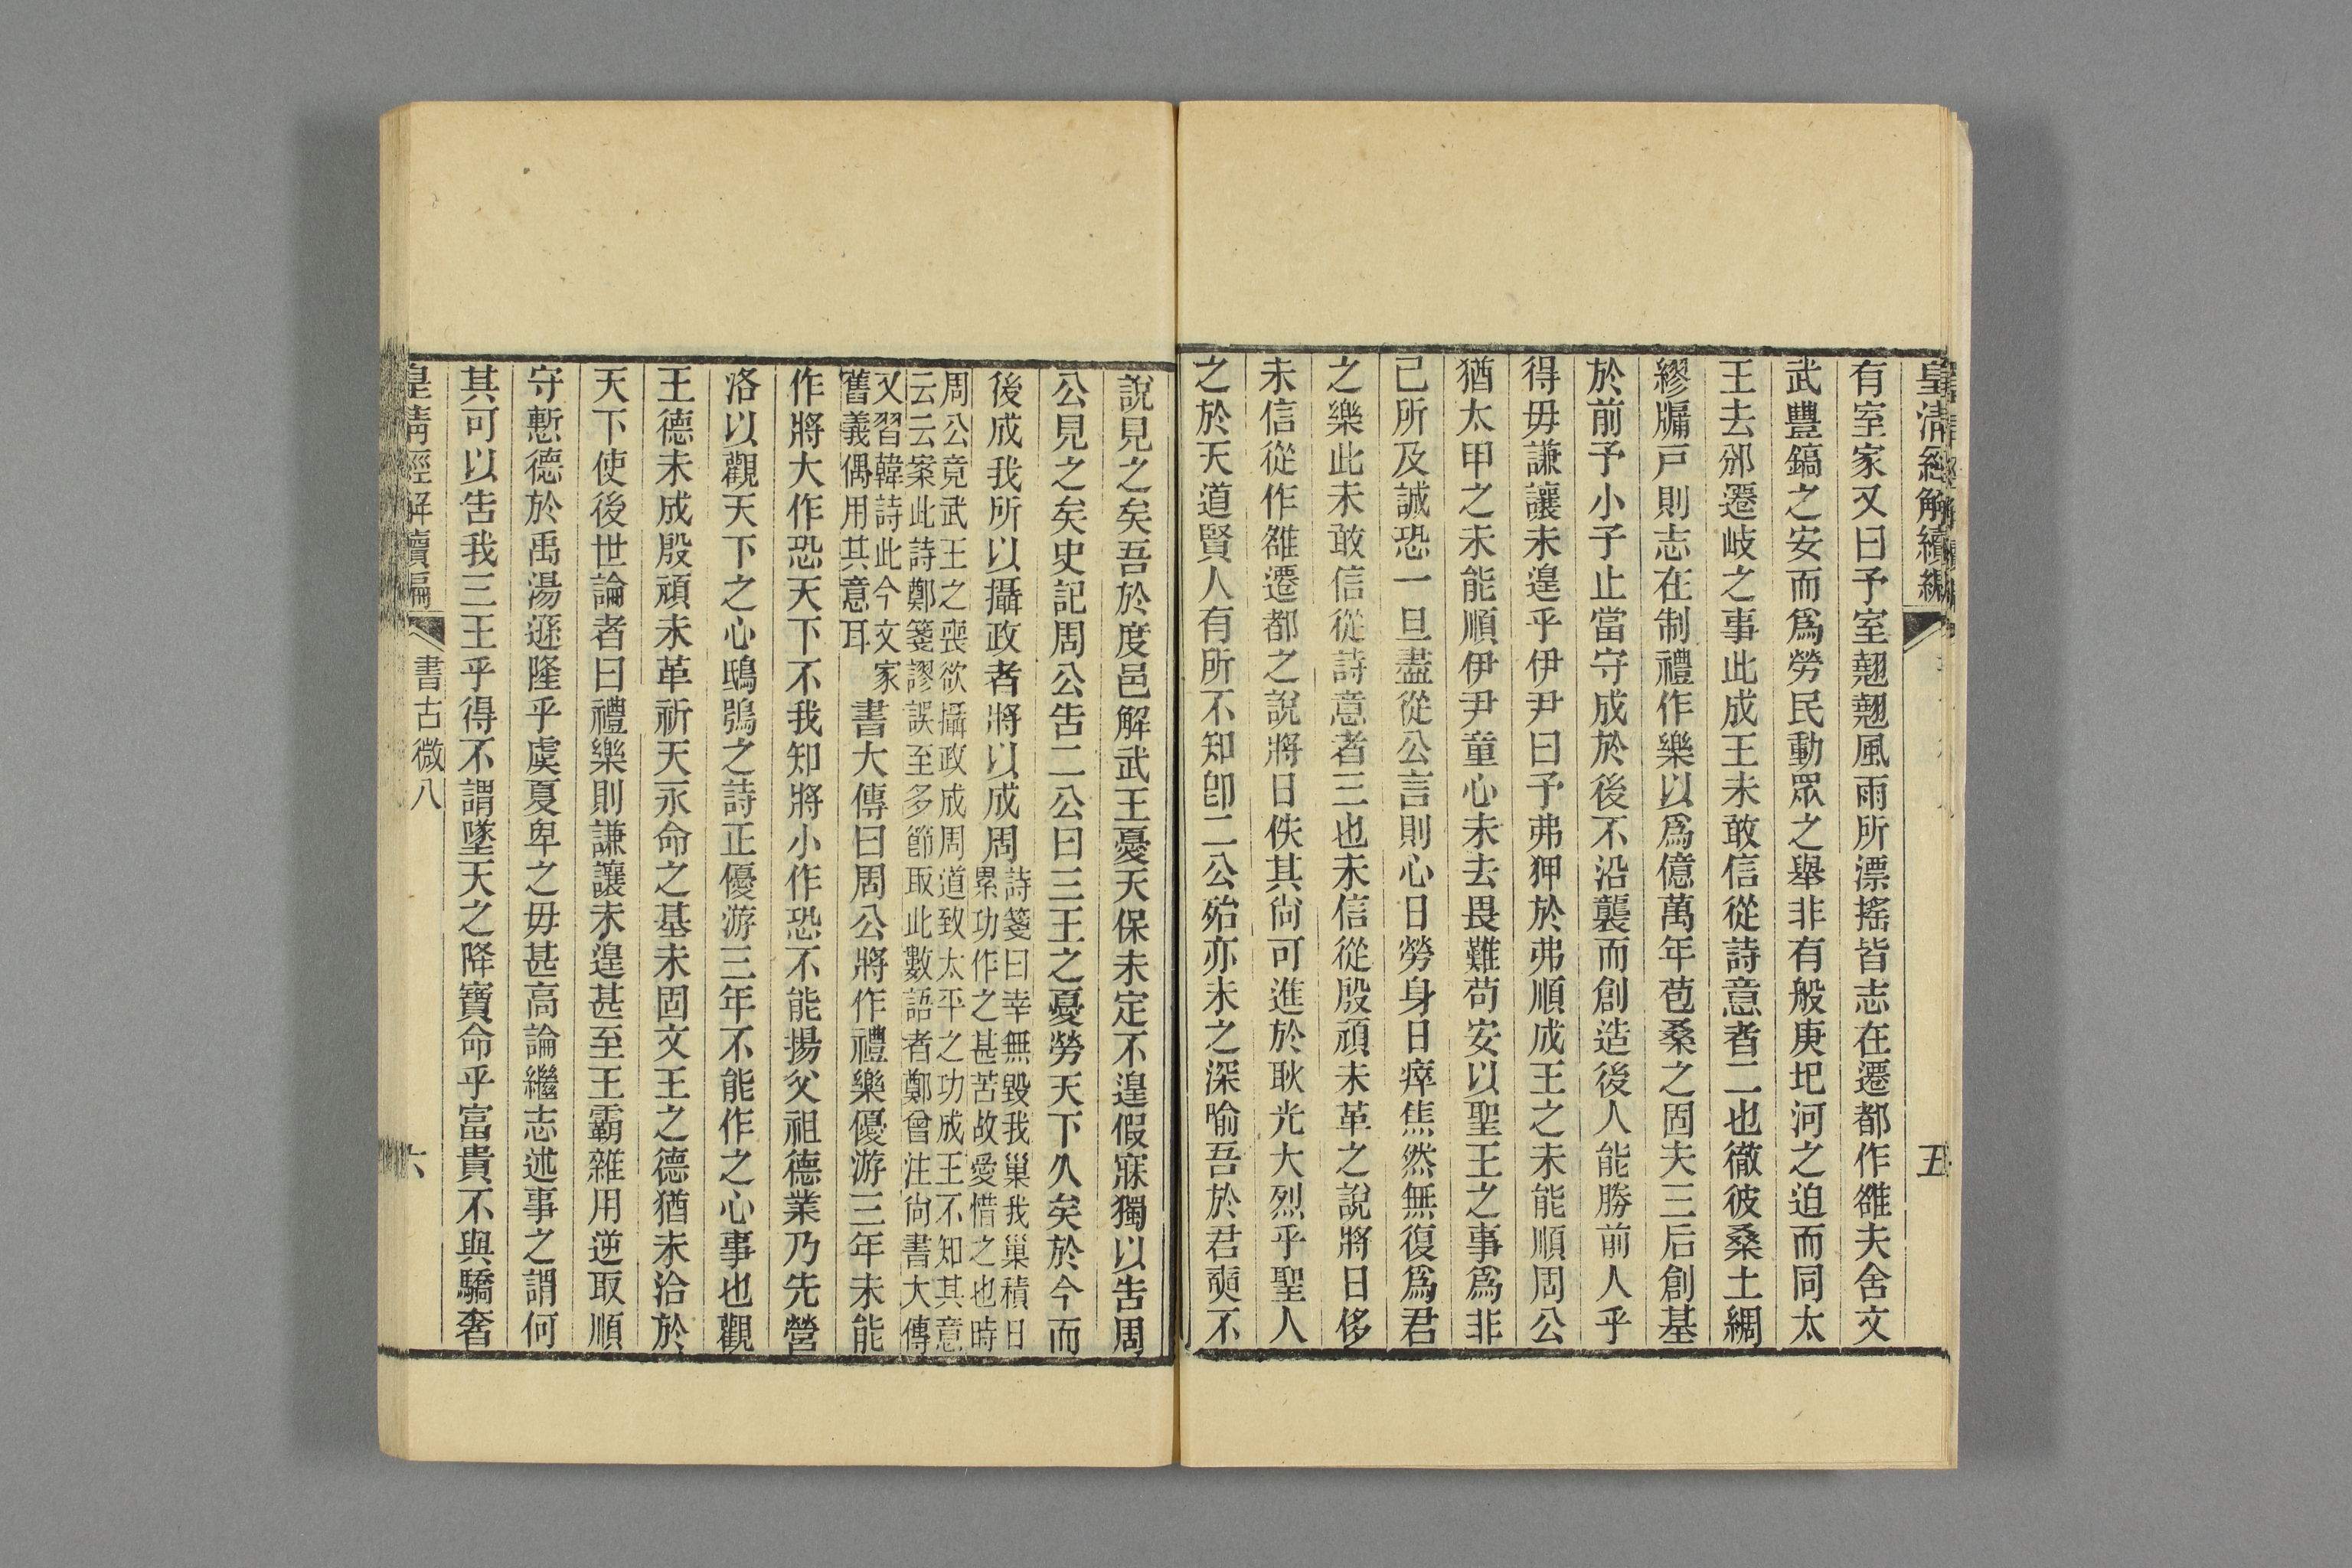 皇清經解續編
五
有室家又曰予室翹翹風雨所漂搖皆志在遷都作雒夫舍文
武豐鎬之安而爲勞民動眾之舉非有般庚圯河之迫而同太
王去邠遷岐之事此成王未敢信從詩意者二也徹彼桑土綢
繆牖戸則志在制禮作樂以爲億萬年苞桑之固夫三后創基
於前予小子止當守成於後不沿襲而創造後人能勝前人乎
得毋謙讓未遑乎伊尹曰予弗狎於弗順成王之未能順周公
猶太甲之未能順伊尹童心未去畏難苟安以聖王之事爲非
己所及誠恐一旦盡從公言則心日勞身日瘁焦然無復爲君
之樂此未敢信從詩意者三也未信從殷頑未革之說將日侈
未信從作雒遷都之說將日佚其尙可進於耿光大烈乎聖人
之於天道賢人有所不知卽二公殆亦未之深喻吾於君奭不
說見之矣吾於度邑解武王憂天保未定不遑假寐獨以告周
公見之矣史記周公告二公曰三王之憂勞天下久矣於今而
後成我所以攝政者將以成周詩箋曰幸無毀我巢我巢積日
累功作之甚苦故愛惜之也時
周公竟武王之喪欲攝政成周道致太平之功成王不知其意
云云案此詩鄭箋謬誤至多節取此數語者鄭曾注尙書大傳
又習韓詩此今文家
舊義偶用其意耳
書大傳曰周公將作禮樂優游三年未能
作將大作恐天下不我知將小作恐不能揚父祖德業乃先營
洛以觀天下之心鴟鴞之詩正優游三年不能作之心事也觀
王德未成殷頑未革祈天永命之基未固文王之德猶未洽於
天下使後世論者曰禮樂則謙讓未遑甚至王霸雜用逆取順
守慙德於禹湯遜隆乎虞夏卑之毋甚高論繼志述事之謂何
其可以告我三王乎得不謂墜天之降寶命乎富貴不與驕奢
皇清經解續編
書古微八
六